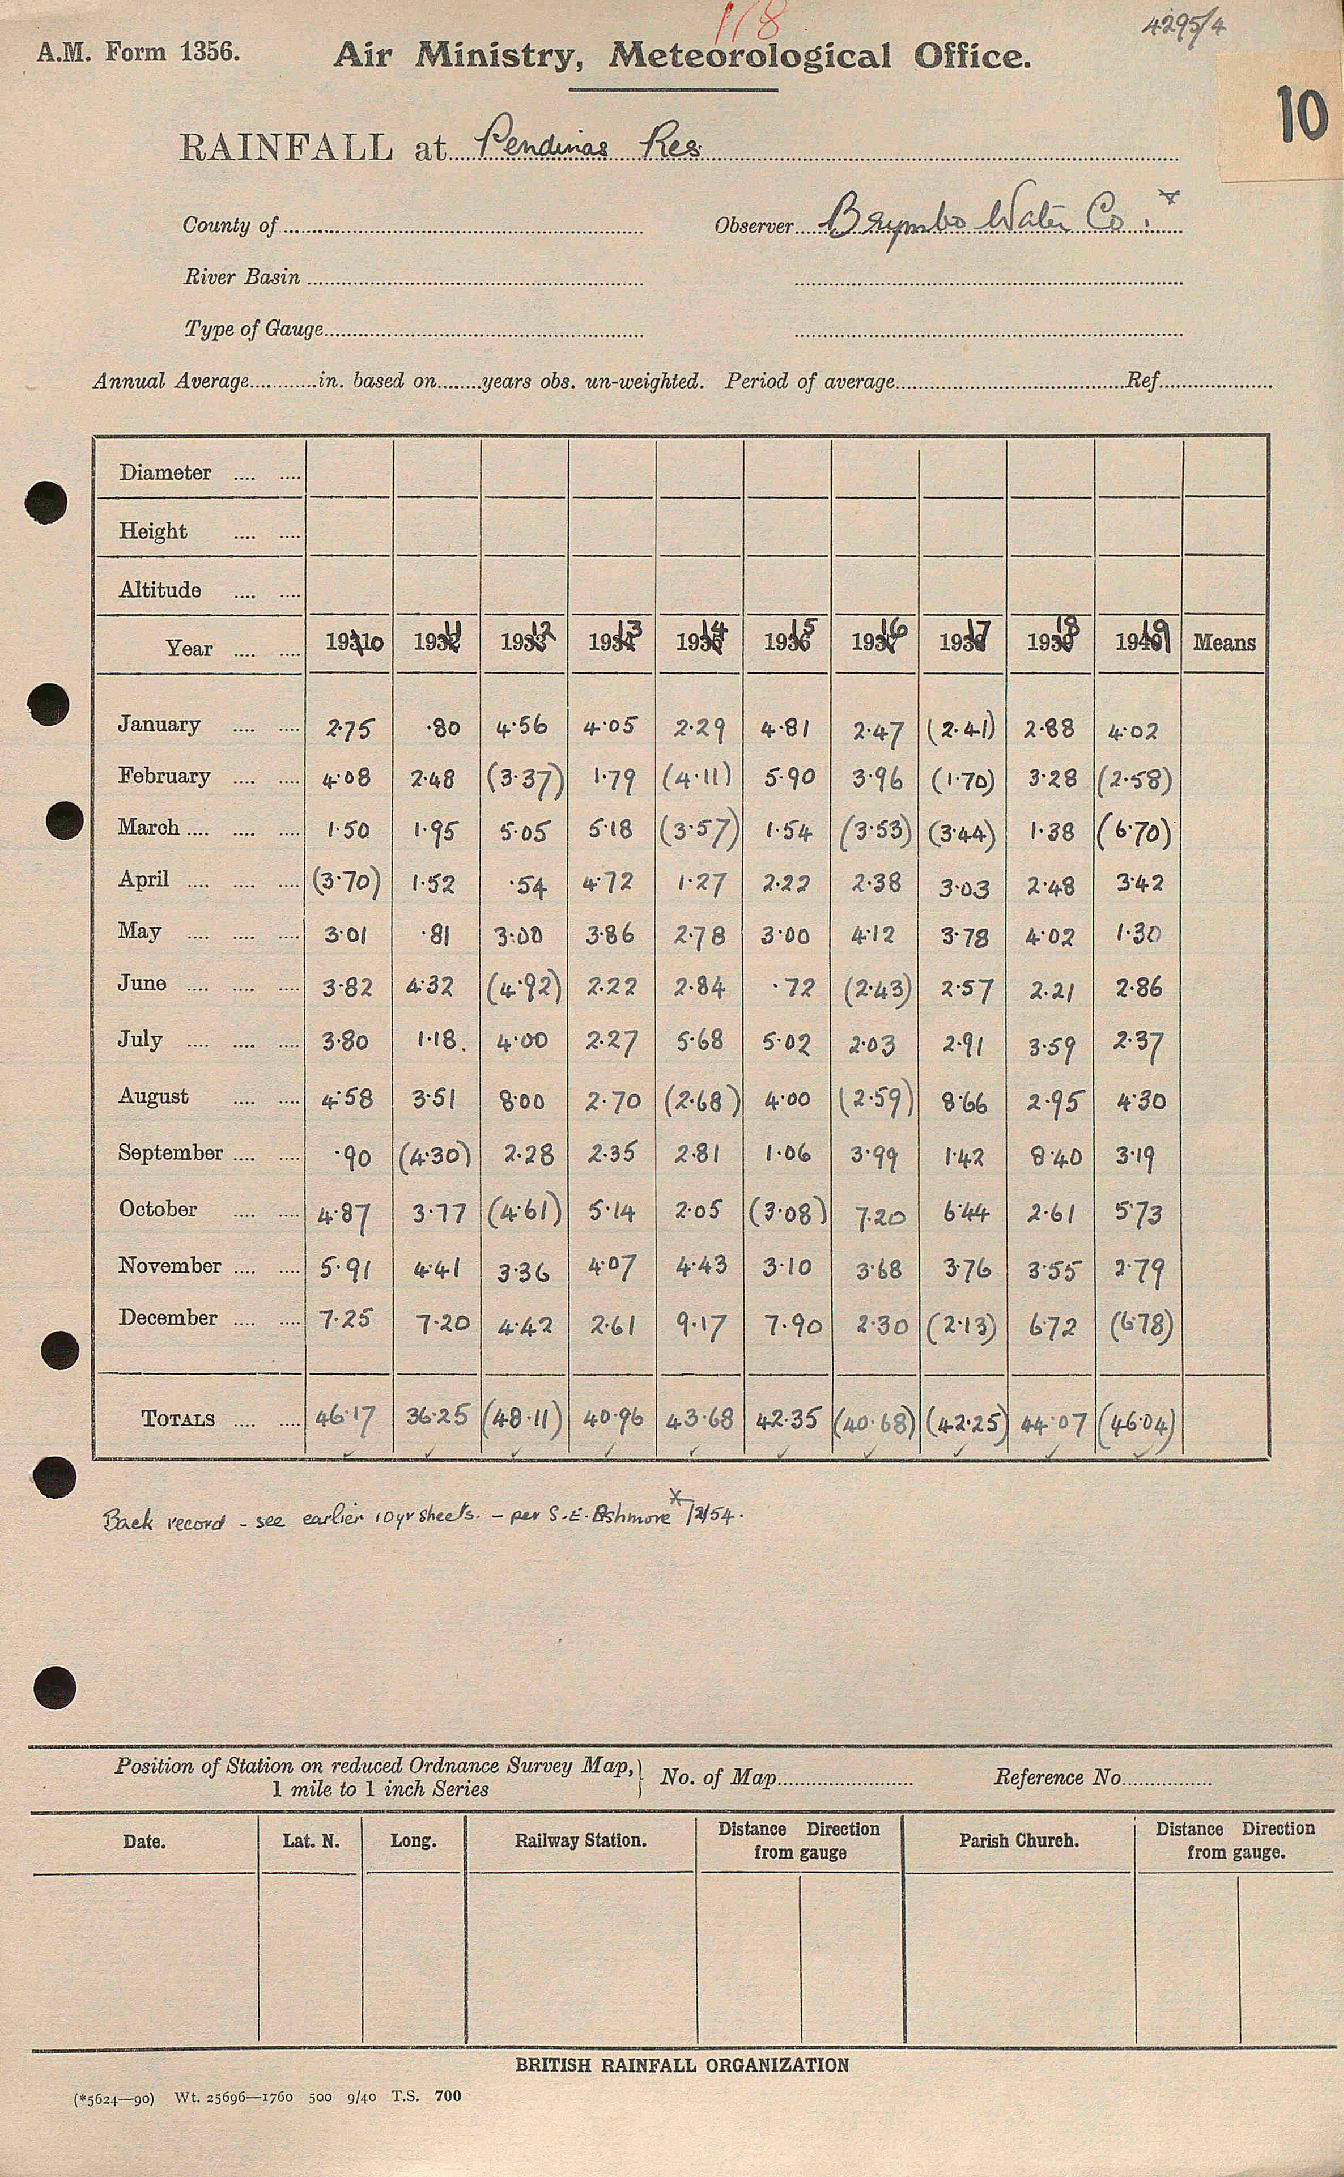 118
4295/4
A.M. Form 1356. Air Ministry, Meteorological Office.
10
RAINFALL at Pendinas Res
County of Observer Brymbo Water Co. x
River Basin
Type of Gauge
Annual Average in. based on years obs. un-weighted. Period of average Ref
Diameter
Height
Altitude
Year 1910 1911 1912 1913 1914 1915 1916 1917 1918 1919 Means
January 2.75 .80 4.56 4.05 2.29 4.81 2.47 (2.41) 2.88 4.02
February 4.08 2.48 (3.37) 1.79 (4.11) 5.90 3.96 (1.70) 3.28 (2.58)
March 1.50 1.95 5.05 5.18 (3.57) 1.54 (3.53) (3.44) 1.38 (6.70)
April (3.70) 1.52 .54 4.72 1.27 2.22 2.38 3.03 2.48 3.42
May 3.01 .81 3.00 3.86 2.78 3.00 4.12 3.78 4.02 1.30
June 3.82 4.32 (4.92) 2.22 2.84 .72 (2.43) 2.57 2.21 2.86
July 3.80 1.18. 4.00 2.27 5.68 5.02 2.03 2.91 3.59 2.37
August 4.58 3.51 8.00 2.70 (2.68) 4.00 (2.59) 8.66 2.95 4.30
September .90 (4.30) 2.28 2.35 2.81 1.06 3.99 1.42 8.40 3.19
October 4.87 3.77 (4.61) 5.14 2.05 (3.08) 7.20 6.44 2.61 5.73
November 5.91 4.41 3.36 4.07 4.43 3.10 3.68 3.76 3.55 2.79
December 7.25 7.20 4.42 2.61 9.17 7.90 2.30 (2.13) 6.72 (6.78)
TOTALS 46.17 36.25 (48.11) 40.96 43.68 42.35 (40.68) (42.25) 44.07 (46.04)
Back record - see earlier 10yr sheets. - per S.E. Ashmore x
Position of Station on reduced Ordnance Survey Map, 1 mile to 1 inch Series } No. of Map Reference No
Date. Lat. N. Long. Railway Station. Distance Direction from gauge Parish Church. Distance Direction from gauge.
BRITISH RAINFALL ORGANIZATION
(*5624—90) Wt. 25696—1760 500 9/40 T.S. 700